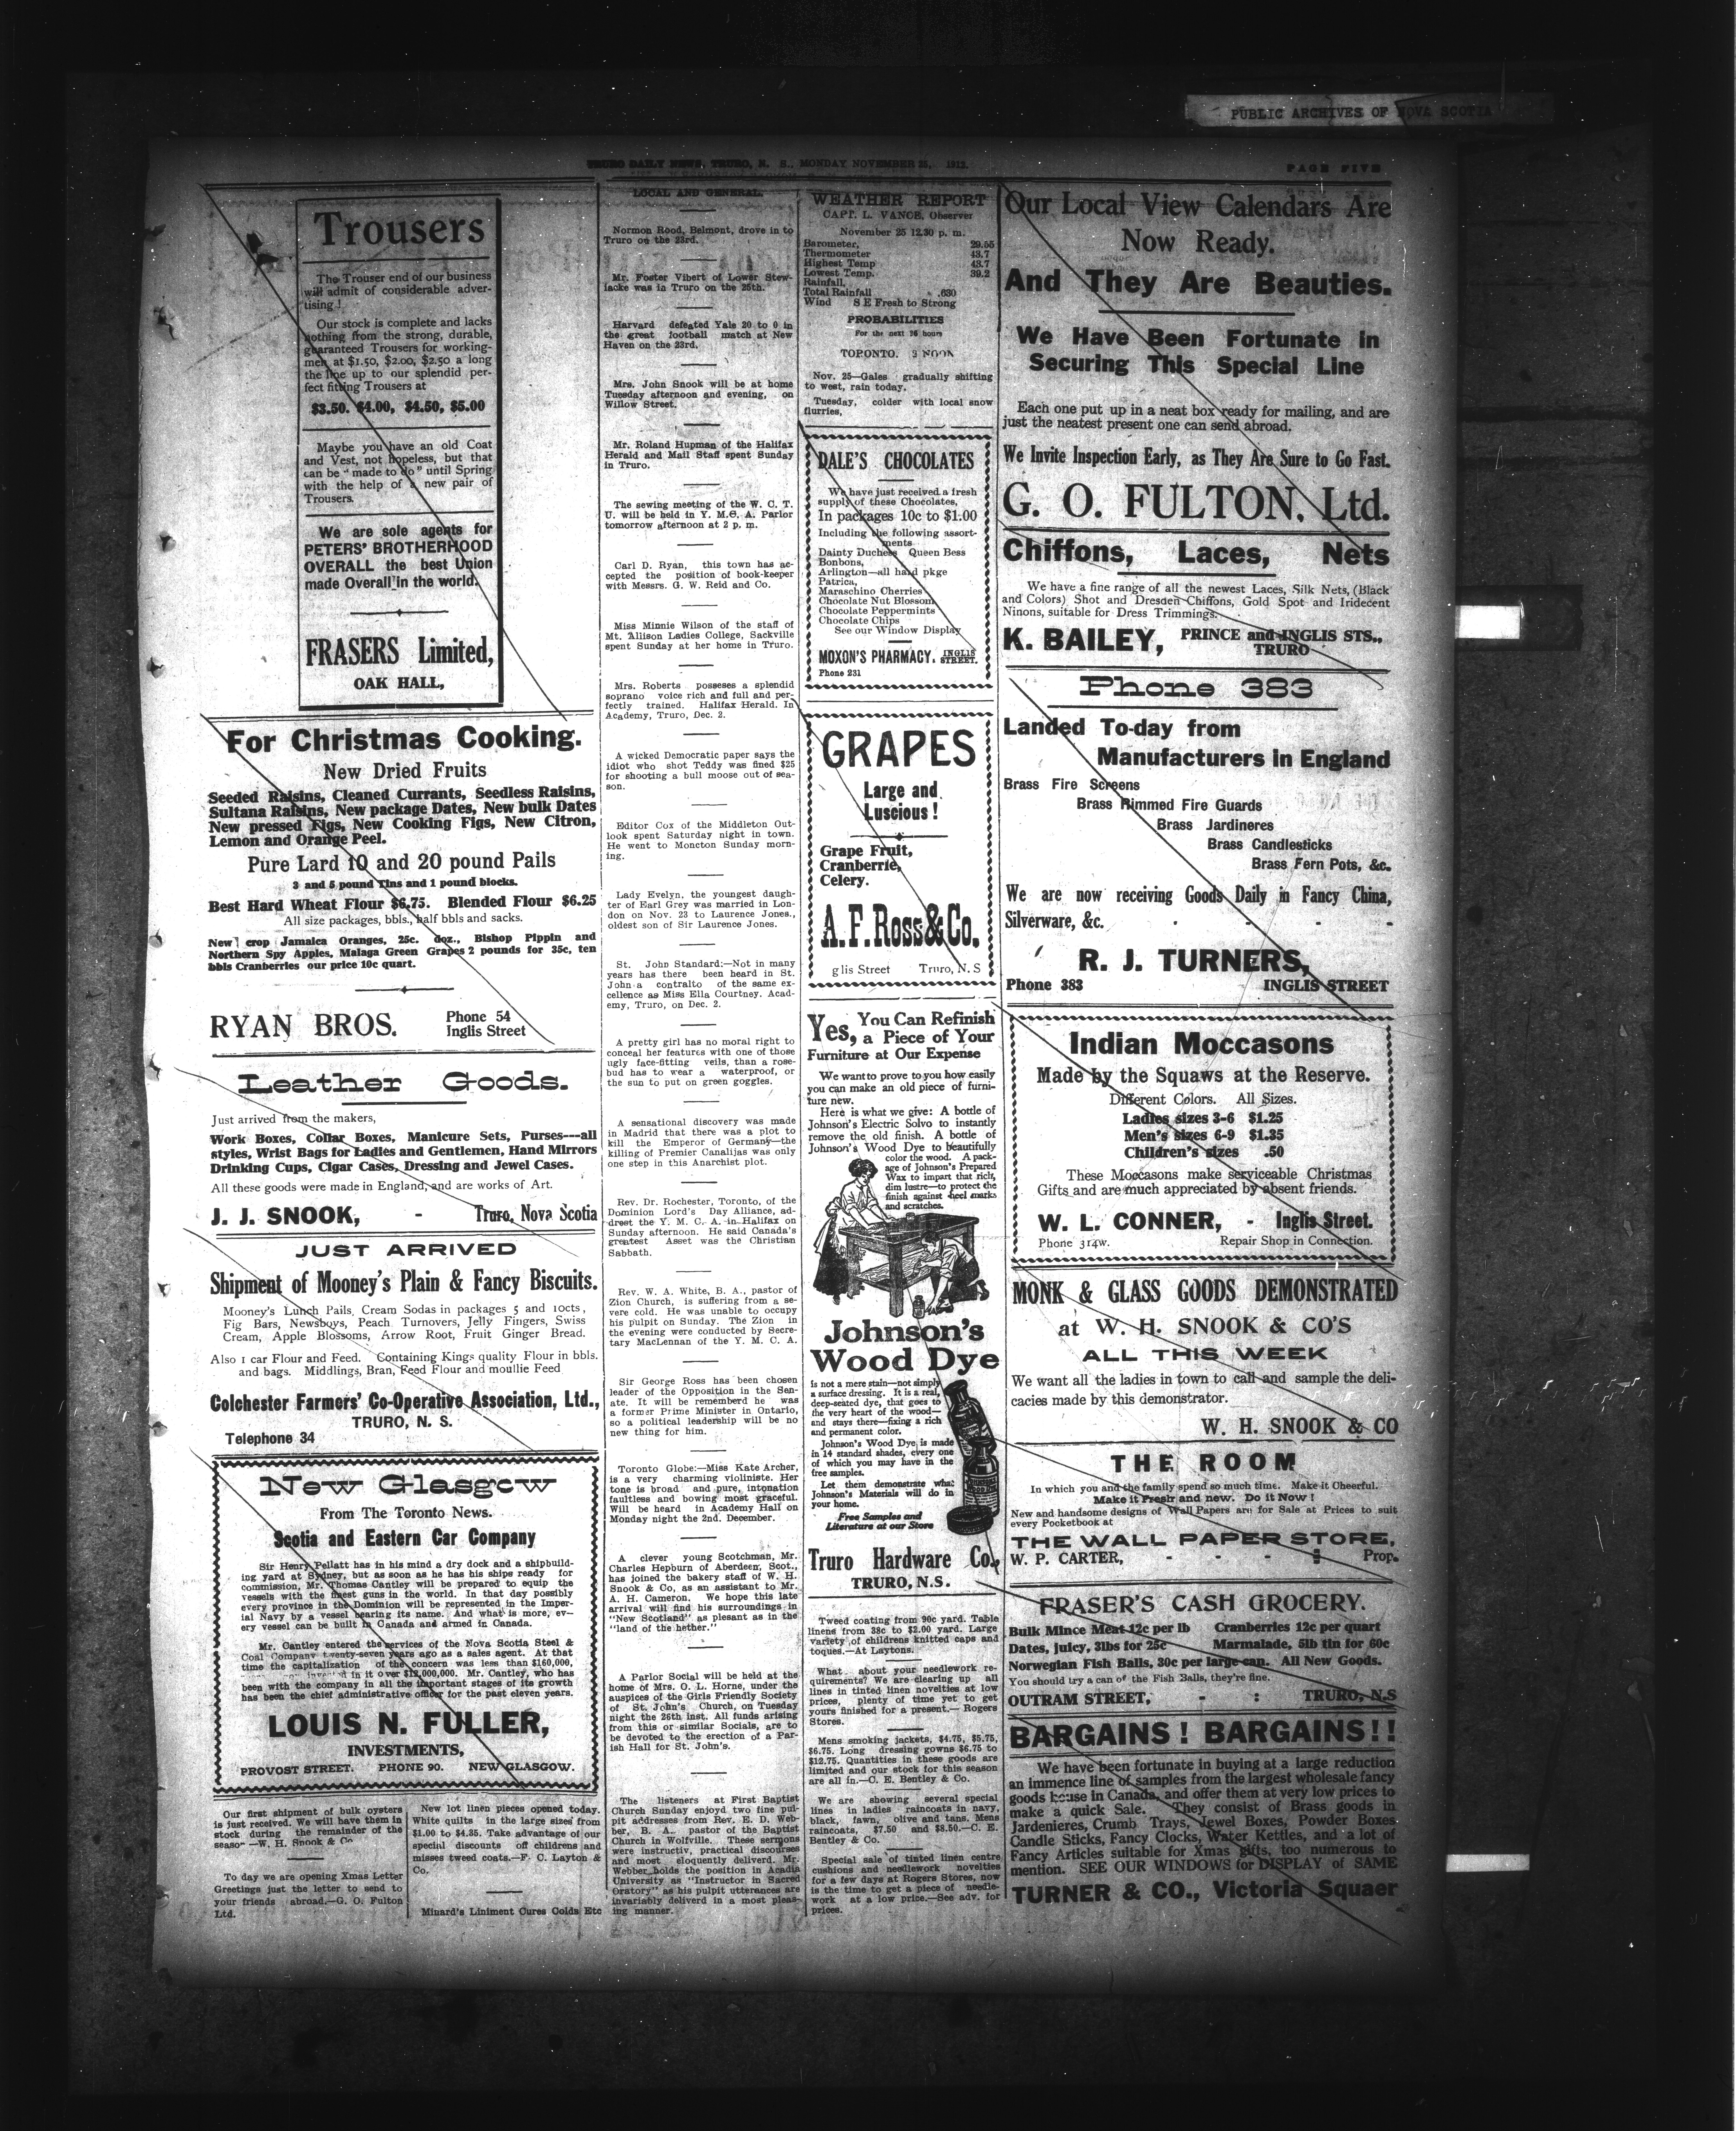 PUBLIC ARCHIVES OF NOVA SCOTIA
TRURO DAILY NEWS, TRURO, N. S., MONDAY NOVEMBER 25, 1912.
PAGE FIVE
Trousers
The Trouser end of our business
will admit of considerable adver-
tising!
Our stock is complete and lacks
nothing from the strong, durable,
guaranteed Trousers for working-
men at $1.50, $2.00, $2.50 a long
the line up to our splendid per-
fect fitting Trousers at
$3.50. $4.00, $4.50, $5.00
Maybe you have an old Coat
and Vest, not hopeless, but that
can be "made to do" until Spring
with the help of a new pair of
Trousers.
We are sole agents for
PETERS' BROTHERHOOD
OVERALL the best Union
made Overall in the world.
FRASERS Limited,
OAK HALL,
For Christmas Cooking.
New Dried Fruits
Seeded Raisins, Cleaned Currants, Seedless Raisins,
Sultana Raisins, New package Dates, New bulk Dates
New pressed Figs, New Cooking Figs, New Citron,
Lemon and Orange Peel.
Pure Lard 10 and 20 pound Pails
3 and 5 pound Tins and 1 pound blocks.
Best Hard Wheat Flour $6.75. Blended Flour $6.25
All size packages, bbls., half bbls and sacks.
New crop Jamaica Oranges, 25c. doz., Bishop Pippin and
Northern Spy Apples, Malaga Green Grapes 2 pounds for 35c, ten
bbls Cranberries our price 10c quart.
RYAN BROS.
Phone 54
Inglis Street
Leather Goods.
Just arrived from the makers,
Work Boxes, Collar Boxes, Manicure Sets, Purses---all
styles, Wrist Bags for Ladies and Gentlemen, Hand Mirrors
Drinking Cups, Cigar Cases, Dressing and Jewel Cases.
All these goods were made in England, and are works of Art.
J. J. SNOOK, - Truro, Nova Scotia
JUST ARRIVED
Shipment of Mooney's Plain & Fancy Biscuits.
Mooney's Lunch Pails, Cream Sodas in packages 5 and 10cts,
Fig Bars, Newsboys, Peach Turnovers, Jelly Fingers, Swiss
Cream, Apple Blossoms, Arrow Root, Fruit Ginger Bread.
Also 1 car Flour and Feed. Containing Kings quality Flour in bbls.
and bags. Middlings, Bran, Feed Flour and moullie Feed
Colchester Farmers' Co-Operative Association, Ltd.,
TRURO, N. S.
Telephone 34
New Glasgow
From The Toronto News.
Scotia and Eastern Car Company
Sir Henry Pellatt has in his mind a dry dock and a shipbuild-
ing yard at Sydney, but as soon as he has his ships ready for
commission, Mr. Thomas Cantley will be prepared to equip the
vessels with the finest guns in the world. In that day possibly
every province in the Dominion will be represented in the Imper-
ial Navy by a vessel bearing its name. And what is more, ev--
ery vessel can be built in Canada and armed in Canada.
Mr. Cantley entered the services of the Nova Scotia Steel &
Coal Company twenty-seven years ago as a sales agent. At that
time the capitalization of the concern was less than $160,000,
in it over $12,000,000. Mr. Cantley, who has
been with the company in all the important stages of its growth
has been the chief administrative officer for the past eleven years.
LOUIS N. FULLER,
INVESTMENTS,
PROVOST STREET. PHONE 90. NEW GLASGOW.
Our first shipment of bulk oysters
is just received. We will have them in
stock during the remainder of the
seaso —W. H. Snook & Co
To day we are opening Xmas Letter
Greetings just the letter to send to
your friends abroad.—G. O. Fulton
Ltd.
New lot linen pieces opened today.
White quilts in the large sizes from
$1.00 to $4.35. Take advantage of our
special discounts off childrens and
misses tweed coats.—F. C. Layton &
Co.
Minard's Liniment Cures Colds Etc
LOCAL AND GENERAL.
Normon Rood, Belmont, drove in to
Truro on the 23rd.
Mr. Foster Vibert of Lower Stew-
iacke was in Truro on the 25th.
Harvard defeated Yale 20 to 0 in
the great football match at New
Haven on the 23rd.
Mrs. John Snook will be at home
Tuesday afternoon and evening, on
Willow Street.
Mr. Roland Hupman of the Halifax
Herald and Mail Staff spent Sunday
in Truro.
The sewing meeting of the W. C. T.
U. will be held in Y. M.C. A. Parlor
tomorrow afternoon at 2 p. m.
Carl D. Ryan, this town has ac-
cepted the position of book-keeper
with Messrs. G. W. Reid and Co.
Miss Minnie Wilson of the staff of
Mt. Allison Ladies College, Sackville
spent Sunday at her home in Truro.
Mrs. Roberts posseses a splendid
soprano voice rich and full and per-
fectly trained. Halifax Herald. In
Academy, Truro, Dec. 2.
A wicked Democratic paper says the
idiot who shot Teddy was fined $25
for shooting a bull moose out of sea-
son.
Editor Cox of the Middleton Out-
look spent Saturday night in town.
He went to Moncton Sunday morn-
ing.
Lady Evelyn, the youngest daugh-
ter of Earl Grey was married in Lon-
don on Nov. 23 to Laurence Jones.,
oldest son of Sir Laurence Jones.
St. John Standard:—Not in many
years has there been heard in St.
John a contralto of the same ex-
cellence as Miss Ella Courtney. Acad-
emy, Truro, on Dec. 2.
A pretty girl has no moral right to
conceal her features with one of those
ugly face-fitting veils, than a rose-
bud has to wear a waterproof, or
the sun to put on green goggles.
A sensational discovery was made
in Madrid that there was a plot to
kill the Emperor of Germany—the
killing of Premier Canalijas was only
one step in this Anarchist plot.
Rev. Dr. Rochester, Toronto, of the
Dominion Lord's Day Alliance, ad-
drest the Y. M. C. A. in Halifax on
Sunday afternoon. He said Canada's
greatest Asset was the Christian
Sabbath.
Rev. W. A. White, B. A., pastor of
Zion Church, is suffering from a se-
vere cold. He was unable to occupy
his pulpit on Sunday. The Zion in
the evening were conducted by Secre-
tary MacLennan of the Y. M. C. A.
Sir George Ross has been chosen
leader of the Opposition in the Sen-
ate. It will be rememberd he was
a former Prime Minister in Ontario,
so a political leadership will be no
new thing for him.
Toronto Globe:—Miss Kate Archer,
is a very charming violiniste. Her
tone is broad and pure, intonation
faultless and bowing most graceful.
Will be heard in Academy Hall on
Monday night the 2nd. December.
A clever young Scotchman, Mr.
Charles Hepburn of Aberdeen, Scot.,
has joined the bakery staff of W. H.
Snook & Co, as an assistant to Mr.
A. H. Cameron. We hope this late
arrival will find his surroundings in
"New Scotland" as plesant as in the
"land of the hether."
A Parlor Social will be held at the
home of Mrs. O. L. Horne, under the
auspices of the Girls Friendly Society
of St. John's Church, on Tuesday
night the 26th inst. All funds arising
from this or similar Socials, are to
be devoted to the erection of a Par-
ish Hall for St. John's.
The listeners at First Baptist
Church Sunday enjoyd two fine pul-
pit addresses from Rev. E. D. Web-
ber, B. A., pastor of the Baptist
Church in Wolfville. These sermons
were instructiv, practical discourses
and most eloquently deliverd. Mr.
Webber holds the position in Acadia
University as "Instructor in Sacred
Oratory" as his pulpit utterances are
invariably deliverd in a most pleas-
ing manner.
WEATHER REPORT
CAPT. L. VANCE, Observer
November 25 12.30 p. m.
Barometer, 29.55
Thermometer 43.7
Highest Temp 43.7
Lowest Temp. 39.2
Rainfall,
Total Rainfall .630
Wind S E Fresh to Strong
PROBABILITIES
For the next 36 hours
TOPONTO. 3 NOON
Nov. 25—Gales gradually shifting
to west, rain today.
Tuesday, colder with local snow
flurries,
DALE'S CHOCOLATES
We have just received a fresh
supply of these Chocolates,
In packages 10c to $1.00
Including the following assort-
ments
Dainty Duchess Queen Bess
Bonbons,
Arlington—all hand pkge
Patrica,
Maraschino Cherries
Chocolate Nut Blossom
Chocolate Peppermints
Chocolate Chips
See our Window Display
MOXON'S PHARMACY. INGLIS
STREET.
Phone 231
GRAPES
Large and
Luscious!
Grape Fruit,
Cranberrie,
Celery.
A.F.Ross&Co.
glis Street Truro, N. S
Yes, You Can Refinish
a Piece of Your
Furniture at Our Expense
We want to prove to you how easily
you can make an old piece of furni-
ture new.
Here is what we give: A bottle of
Johnson's Electric Solvo to instantly
remove the old finish. A bottle of
Johnson's Wood Dye to beautifully
color the wood. A pack-
age of Johnson's Prepared
Wax to impart that rich,
dim lustre—to protect the
finish against heel marks
and scratches.
Johnson's
Wood Dye
is not a mere stain—not simply
a surface dressing. It is a real,
deep-seated dye, that goes to
the very heart of the wood—
and stays there—fixing a rich
and permanent color.
Johnson's Wood Dye is made
in 14 standard shades, every one
of which you may have in the
free samples.
Let them demonstrate what
Johnson's Materials will do in
your home.
Free Samples and
Literature at our Store
Truro Hardware Co.,
TRURO, N.S.
Tweed coating from 90c yard. Table
linens from 38c to $2.00 yard. Large
variety of childrens knitted caps and
toques.—At Laytons.
What about your needlework re-
quirements? We are clearing up all
lines in tinted linen novelties at low
prices, plenty of time yet to get
yours finished for a present.— Rogers
Stores.
Mens smoking jackets, $4.75, $5.75,
$6.75. Long dressing gowns $6.75 to
$12.75. Quantities in these goods are
limited and our stock for this season
are all in.—C. E. Bentley & Co.
We are showing several special
lines in ladies raincoats in navy,
black, fawn, olive and tans. Mens
raincoats, $7.50 and $8.50.—C. E.
Bentley & Co.
Special sale of tinted linen centre
cushions and needlework novelties
for a few days at Rogers Stores, now
is the time to get a piece of needle-
work at a low price.—See adv. for
prices.
Our Local View Calendars Are
Now Ready.
And They Are Beauties.
We Have Been Fortunate in
Securing This Special Line
Each one put up in a neat box ready for mailing, and are
just the neatest present one can send abroad.
We Invite Inspection Early, as They Are Sure to Go Fast.
G. O. FULTON, Ltd.
Chiffons, Laces, Nets
We have a fine range of all the newest Laces, Silk Nets, (Black
and Colors) Shot and Dresden Chiffons, Gold Spot and Iridecent
Ninons, suitable for Dress Trimmings.
K. BAILEY, PRINCE and INGLIS STS.,
TRURO
Phone 383
Landed To-day from
Manufacturers in England
Brass Fire Screens
Brass Rimmed Fire Guards
Brass Jardineres
Brass Candlesticks
Brass Fern Pots, &c.
We are now receiving Goods Daily in Fancy China,
Silverware, &c. - - - -
R. J. TURNERS,
Phone 383 INGLIS STREET
Indian Moccasons
Made by the Squaws at the Reserve.
Different Colors. All Sizes.
Ladies sizes 3-6 $1.25
Men's sizes 6-9 $1.35
Children's sizes .50
These Moccasons make serviceable Christmas
Gifts and are much appreciated by absent friends.
W. L. CONNER, - Inglis Street.
Phone 314w. Repair Shop in Connection.
MONK & GLASS GOODS DEMONSTRATED
at W. H. SNOOK & CO'S
ALL THIS WEEK
We want all the ladies in town to call and sample the deli-
cacies made by this demonstrator.
W. H. SNOOK & CO
THE ROOM
In which you and the family spend so much time. Make it Cheerful.
Make it Fresh and new. Do it Now!
New and handsome designs of Wall Papers are for Sale at Prices to suit
every Pocketbook at
THE WALL PAPER STORE,
W. P. CARTER, - - - : Prop.
FRASER'S CASH GROCERY.
Bulk Mince Meat 12c per lb Cranberries 12c per quart
Dates, juicy, 3lbs for 25c Marmalade, 5lb tin for 60c
Norwegian Fish Balls, 30c per large can. All New Goods.
You should try a can of the Fish Balls, they're fine.
OUTRAM STREET, - : TRURO, N.S
BARGAINS! BARGAINS!!
We have been fortunate in buying at a large reduction
an immence line of samples from the largest wholesale fancy
goods house in Canada, and offer them at very low prices to
make a quick Sale. They consist of Brass goods in
Jardenieres, Crumb Trays, Jewel Boxes, Powder Boxes
Candle Sticks, Fancy Clocks, Water Kettles, and a lot of
Fancy Articles suitable for Xmas gifts, too numerous to
mention. SEE OUR WINDOWS for DISPLAY of SAME
TURNER & CO., Victoria Squaer